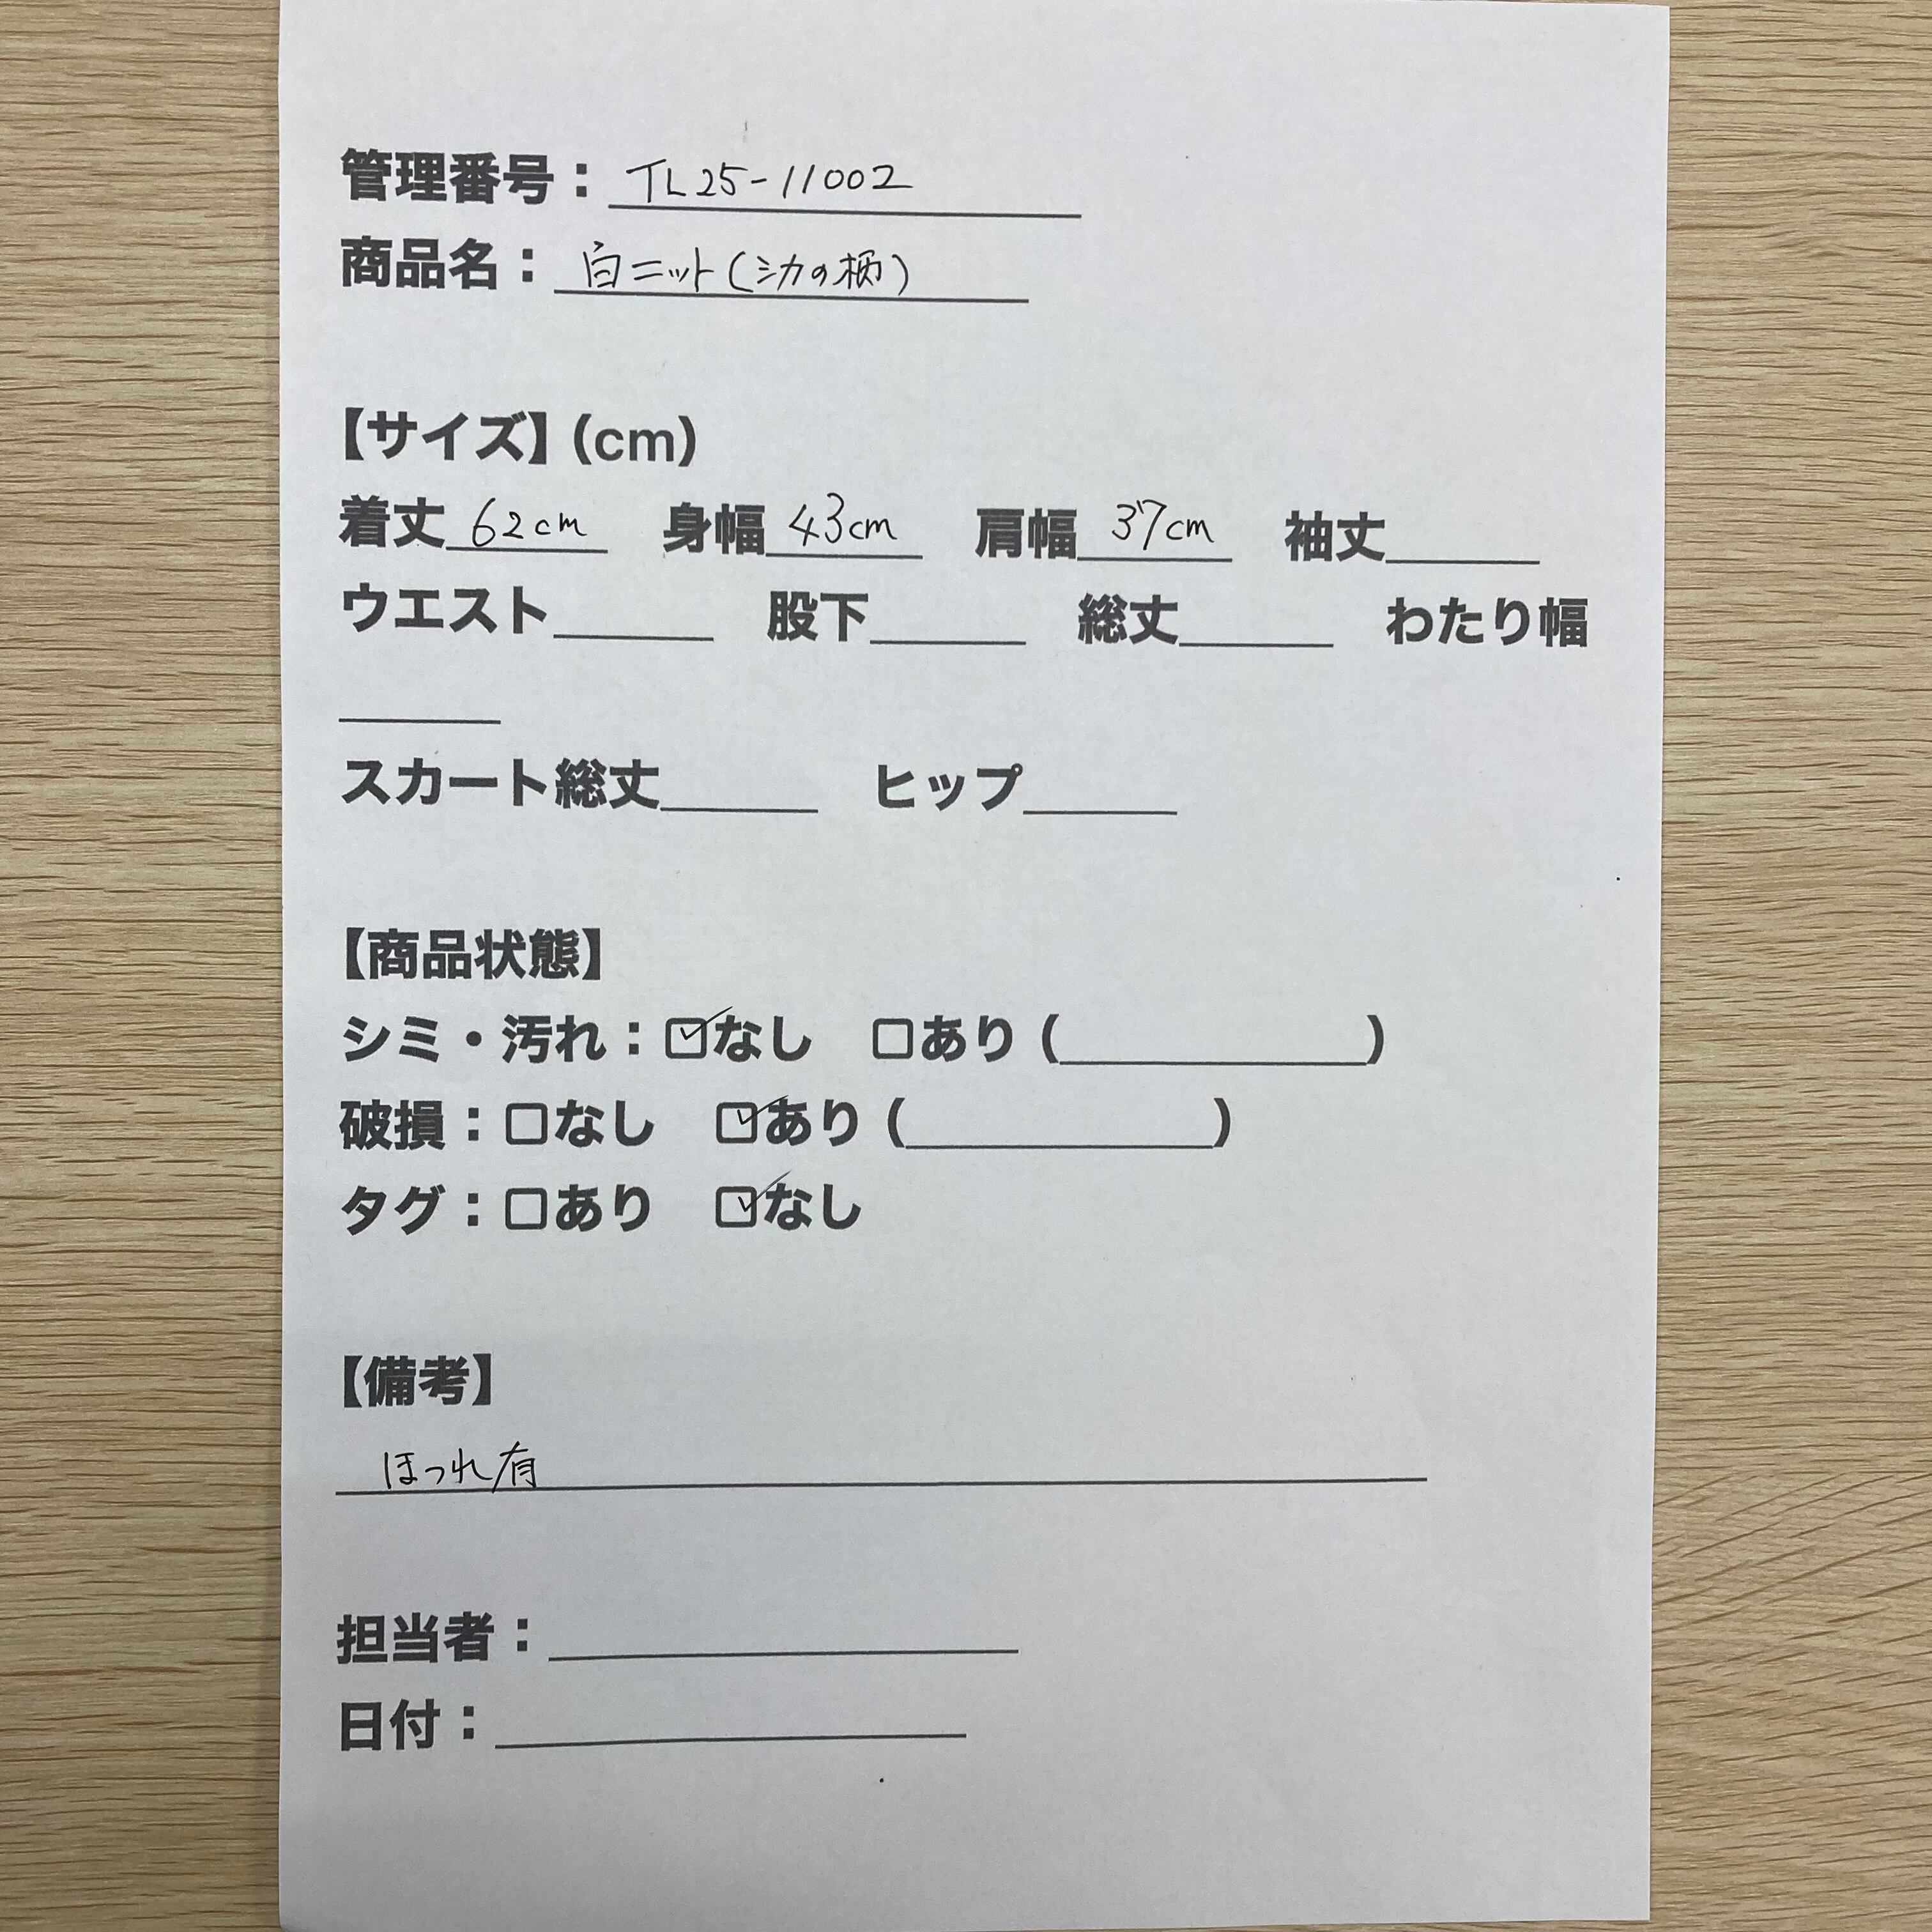 管理番号：TL25-11002
商品名：白ニット(シカの柄)
【サイズ】(cm)
着丈 62cm 身幅 43cm 肩幅 37cm 袖丈______
ウエスト______ 股下______ 総丈______ わたり幅
______
スカート総丈______ ヒップ______
【商品状態】
シミ・汚れ：☑なし □あり(____________)
破損：□なし ☑あり(____________)
タグ：□あり ☑なし
【備考】
ほつれ有
担当者：__________________
日付：__________________